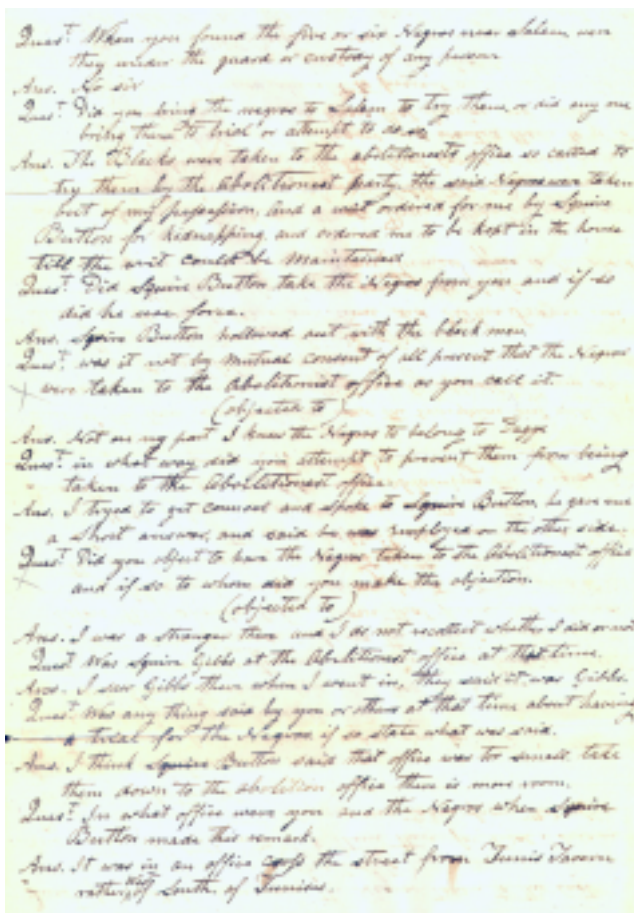 Quest. When you found the five or six Negros near Salem, were
they under the guard or custody of any person
Ans. No sir
Quest. Did you bring the negros to Salem to try them, or did any one
bring them to trial or attempt to do so
Ans. The Blacks were taken to the abolitionests office so called to
try them by the Abolitionest party, the said Negros were taken
out of my possession, and a writ ordered for me by Squire
Button for kidnapping and ordered me to be kept in the house
till the writ could be maintained
Quest. Did Squire Button take the Negros from you and if so
did he use force.
Ans. Squire Button hollowed out with the black men.
Quest. was it not by mutual consent of all present that the Negros
were taken to the Abolitionist office as you call it.
(objected to)
Ans. Not on my part I knew the Negros to belong to
Quest. in what way did you attempt to prevent them from being
taken to the Abolitionest office
Ans. I tryed to get counsel and spoke to Squire Button, he gave me
a short answer, and said he was employed on the other side.
Quest. Did you object to have the Negros taken to the Abolitionest office
and if so to whom did you make the objection.
(objected to)
Ans. I was a stranger there and I do not recollect whether I did or not
Quest. Was Squire Gibbs at the Abolitionest office at that time.
Ans. I saw Gibbs there when I went in, they said it was Gibbs.
Quest. Was any thing said by you or others at that time about having
a trial for the Negros if so state what was said.
Ans. I think Squire Button said that office was too small, take
them down to the abolition office there is more room.
Quest. In what office were you and the Negros when Squire
Button made this remark.
Ans. It was in an office the street from Tavern
rather west of South of